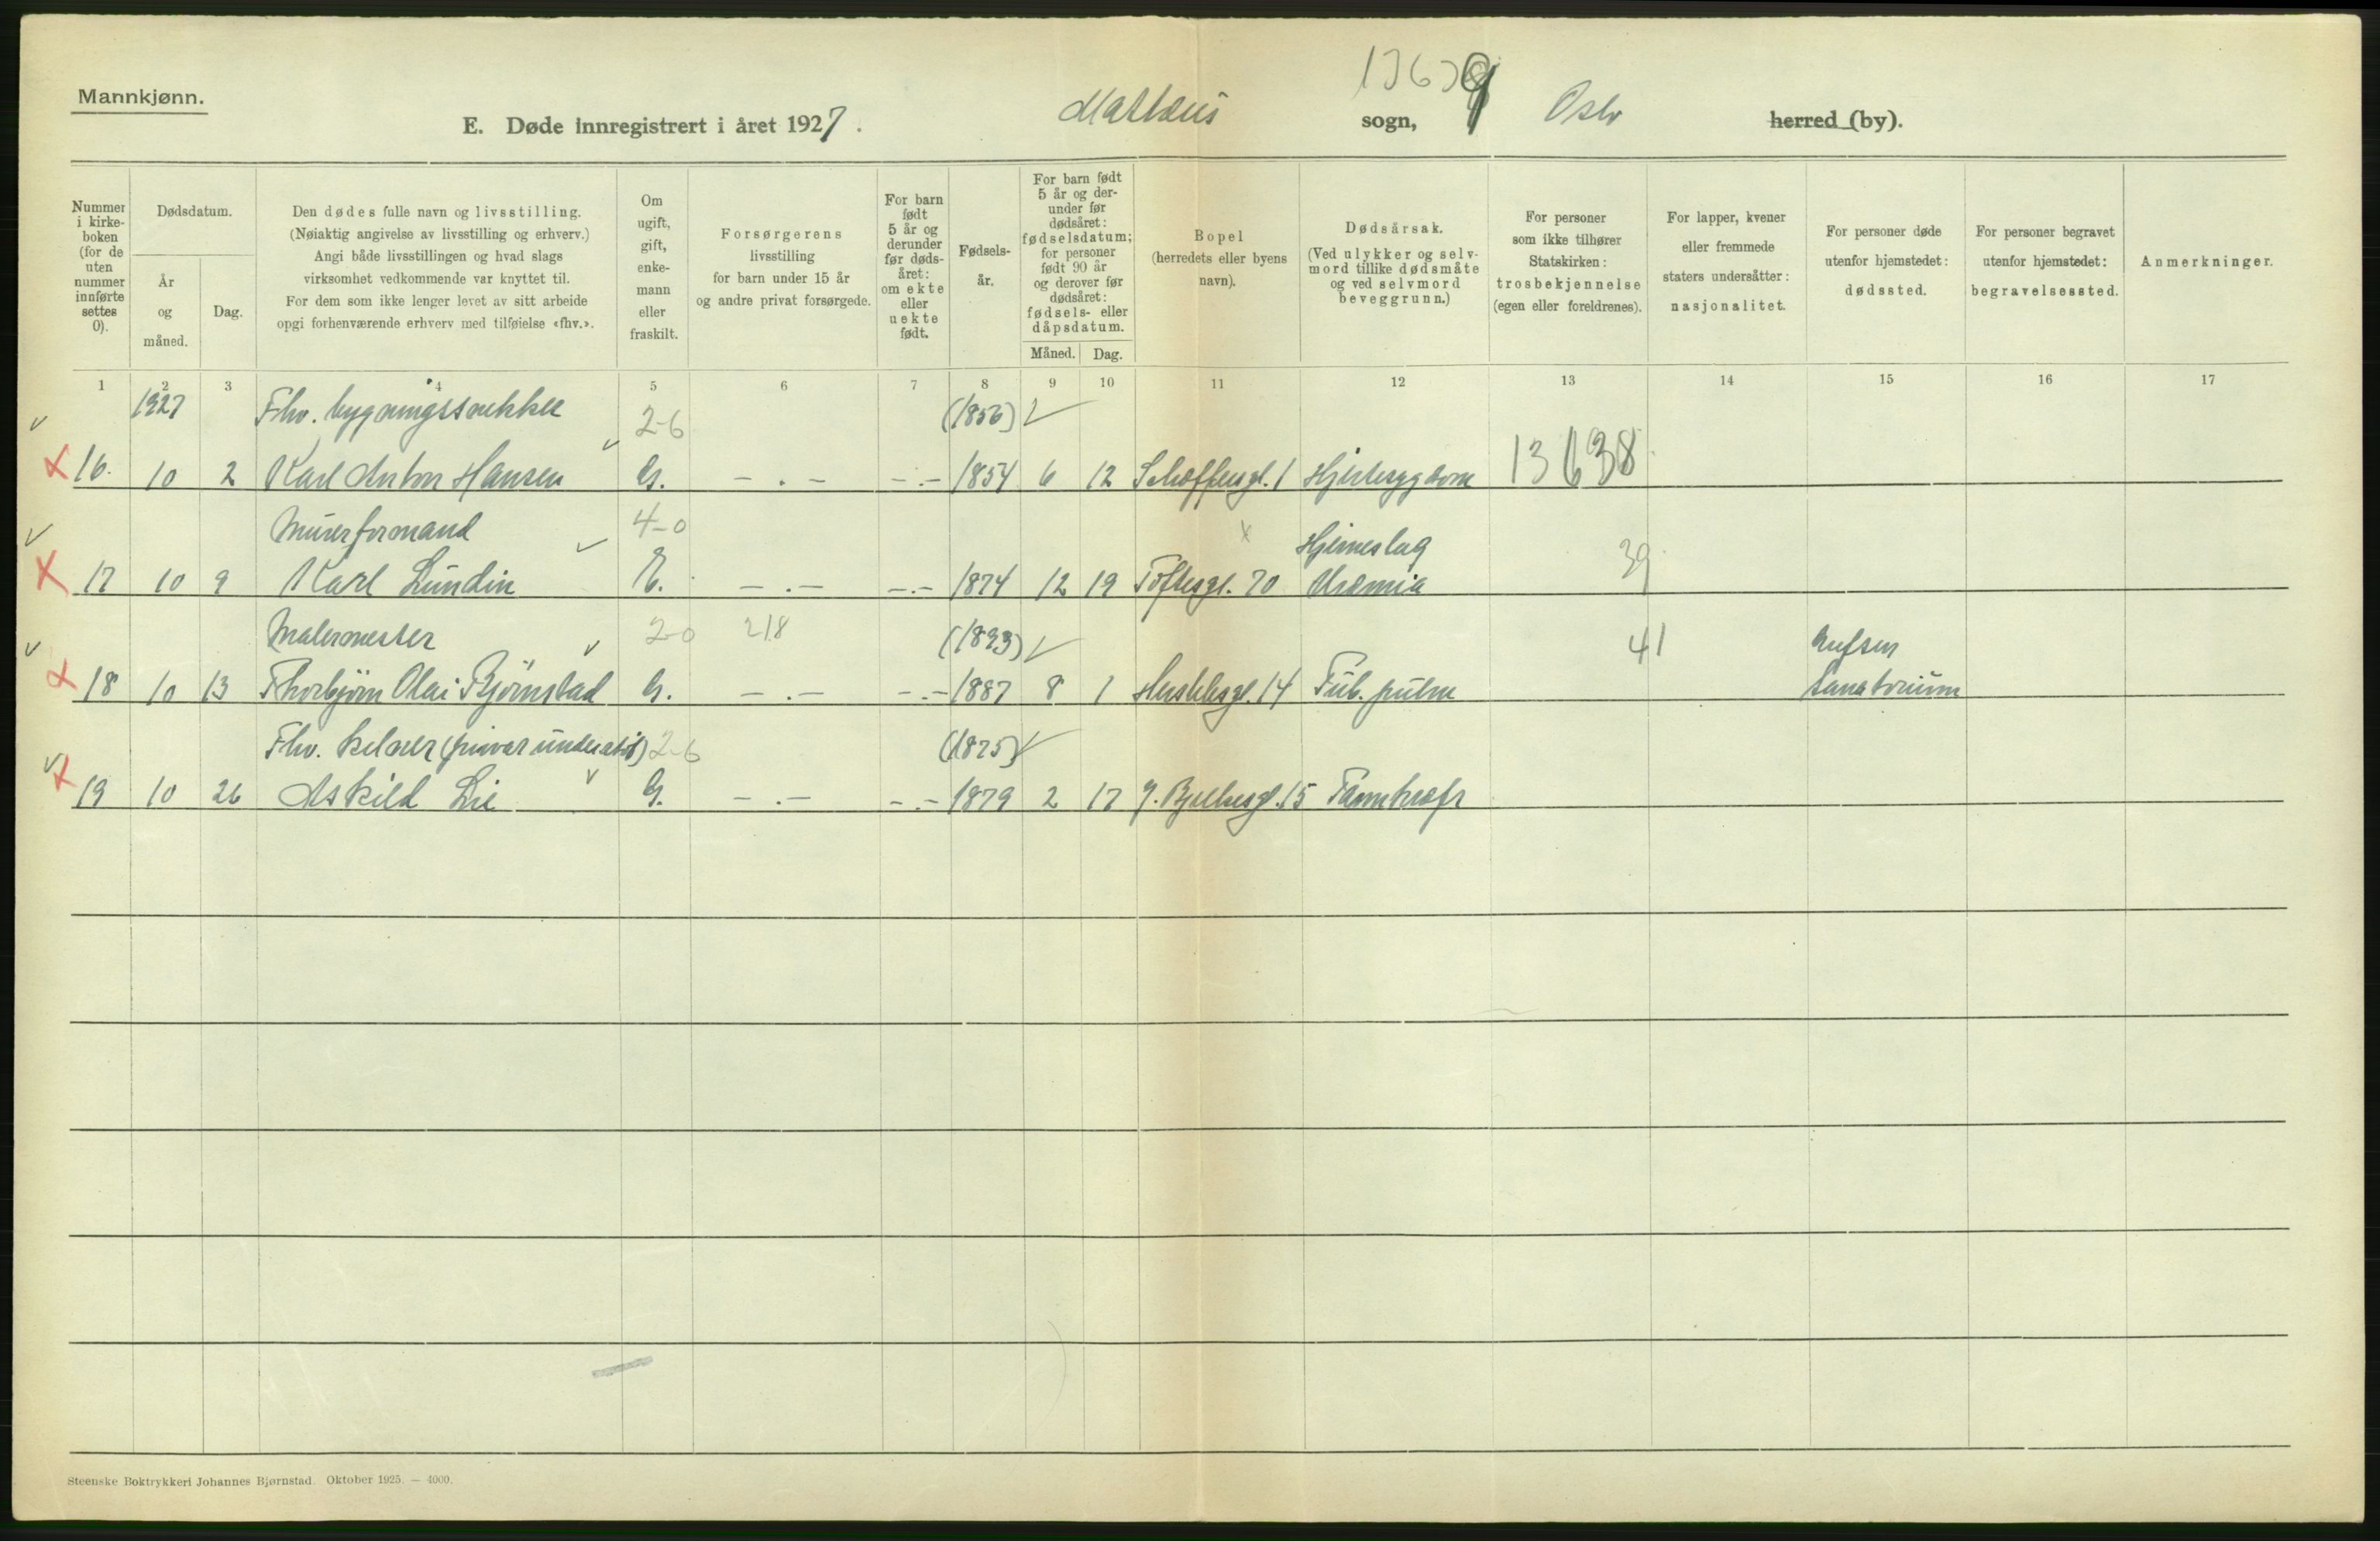 Mannkjønn.
E. Døde innregistrert i året 1927.
Matteus sogn,
1363
9
Oslo herred (by).
Nummer i kirkeboken (for de uten nummer innførte settes 0).
Dødsdatum.
År og måned.
Dag.
Den dødes fulle navn og livsstilling.
(Nøiaktig angivelse av livsstilling og erhverv.)
Angi både livsstillingen og hvad slags
virksomhet vedkommende var knyttet til.
For dem som ikke lenger levet av sitt arbeide
opgi forhenværende erhverv med tilføielse «fhv.».
Om ugift, gift, enkemann eller fraskilt.
Forsørgerens
livsstilling
for barn under 15 år
og andre privat forsørgede.
For barn født 5 år og derunder før dødsåret: om ekte eller uekte født.
Fødselsår.
For barn født 5 år og derunder før dødsåret: fødselsdatum; for personer født 90 år og derover før dødsåret: fødsels- eller dåpsdatum.
Måned.
Dag.
Bopel
(herredets eller byens
navn).
Dødsårsak.
(Ved ulykker og selvmord tillike dødsmåte og ved selvmord beveggrunn.)
For personer
som ikke tilhører
Statskirken:
trosbekjennelse
(egen eller foreldrenes).
For lapper, kvener
eller fremmede
staters undersåtter:
nasjonalitet.
For personer døde
utenfor hjemstedet:
dødssted.
For personer begravet
utenfor hjemstedet:
begravelsessted.
Anmerkninger.
1 2 3 4 5 6 7 8 9 10 11 12 13 14 15 16 17
1927 Fhv. bygningssnekker 2-6 (1856)
16. 10 2 Karl Anton Hansen G. - . - - . - 1854 6 12 Schæffersgt. 1 Hjertesygdom 13638
Murerformand 4-0 Hjerneslag 39
17 10 9 Karl Lundin E. - . - - . - 1874 12 19 Toftesgt. 70 Uræmia
Malermester 2-0 218 (1893) 41 Grefsen
18 10 13 Thorbjørn Olai Bjørnstad G. - . - - . - 1887 8 1 14 Tub. pulm Sanatorium
Fhv. kelner 2-6 (1875)
19 10 26 Askild Lie G. - . - - . - 1879 2 17 15
Steenske Boktrykkeri Johannes Bjørnstad. Oktober 1925. — 4000.